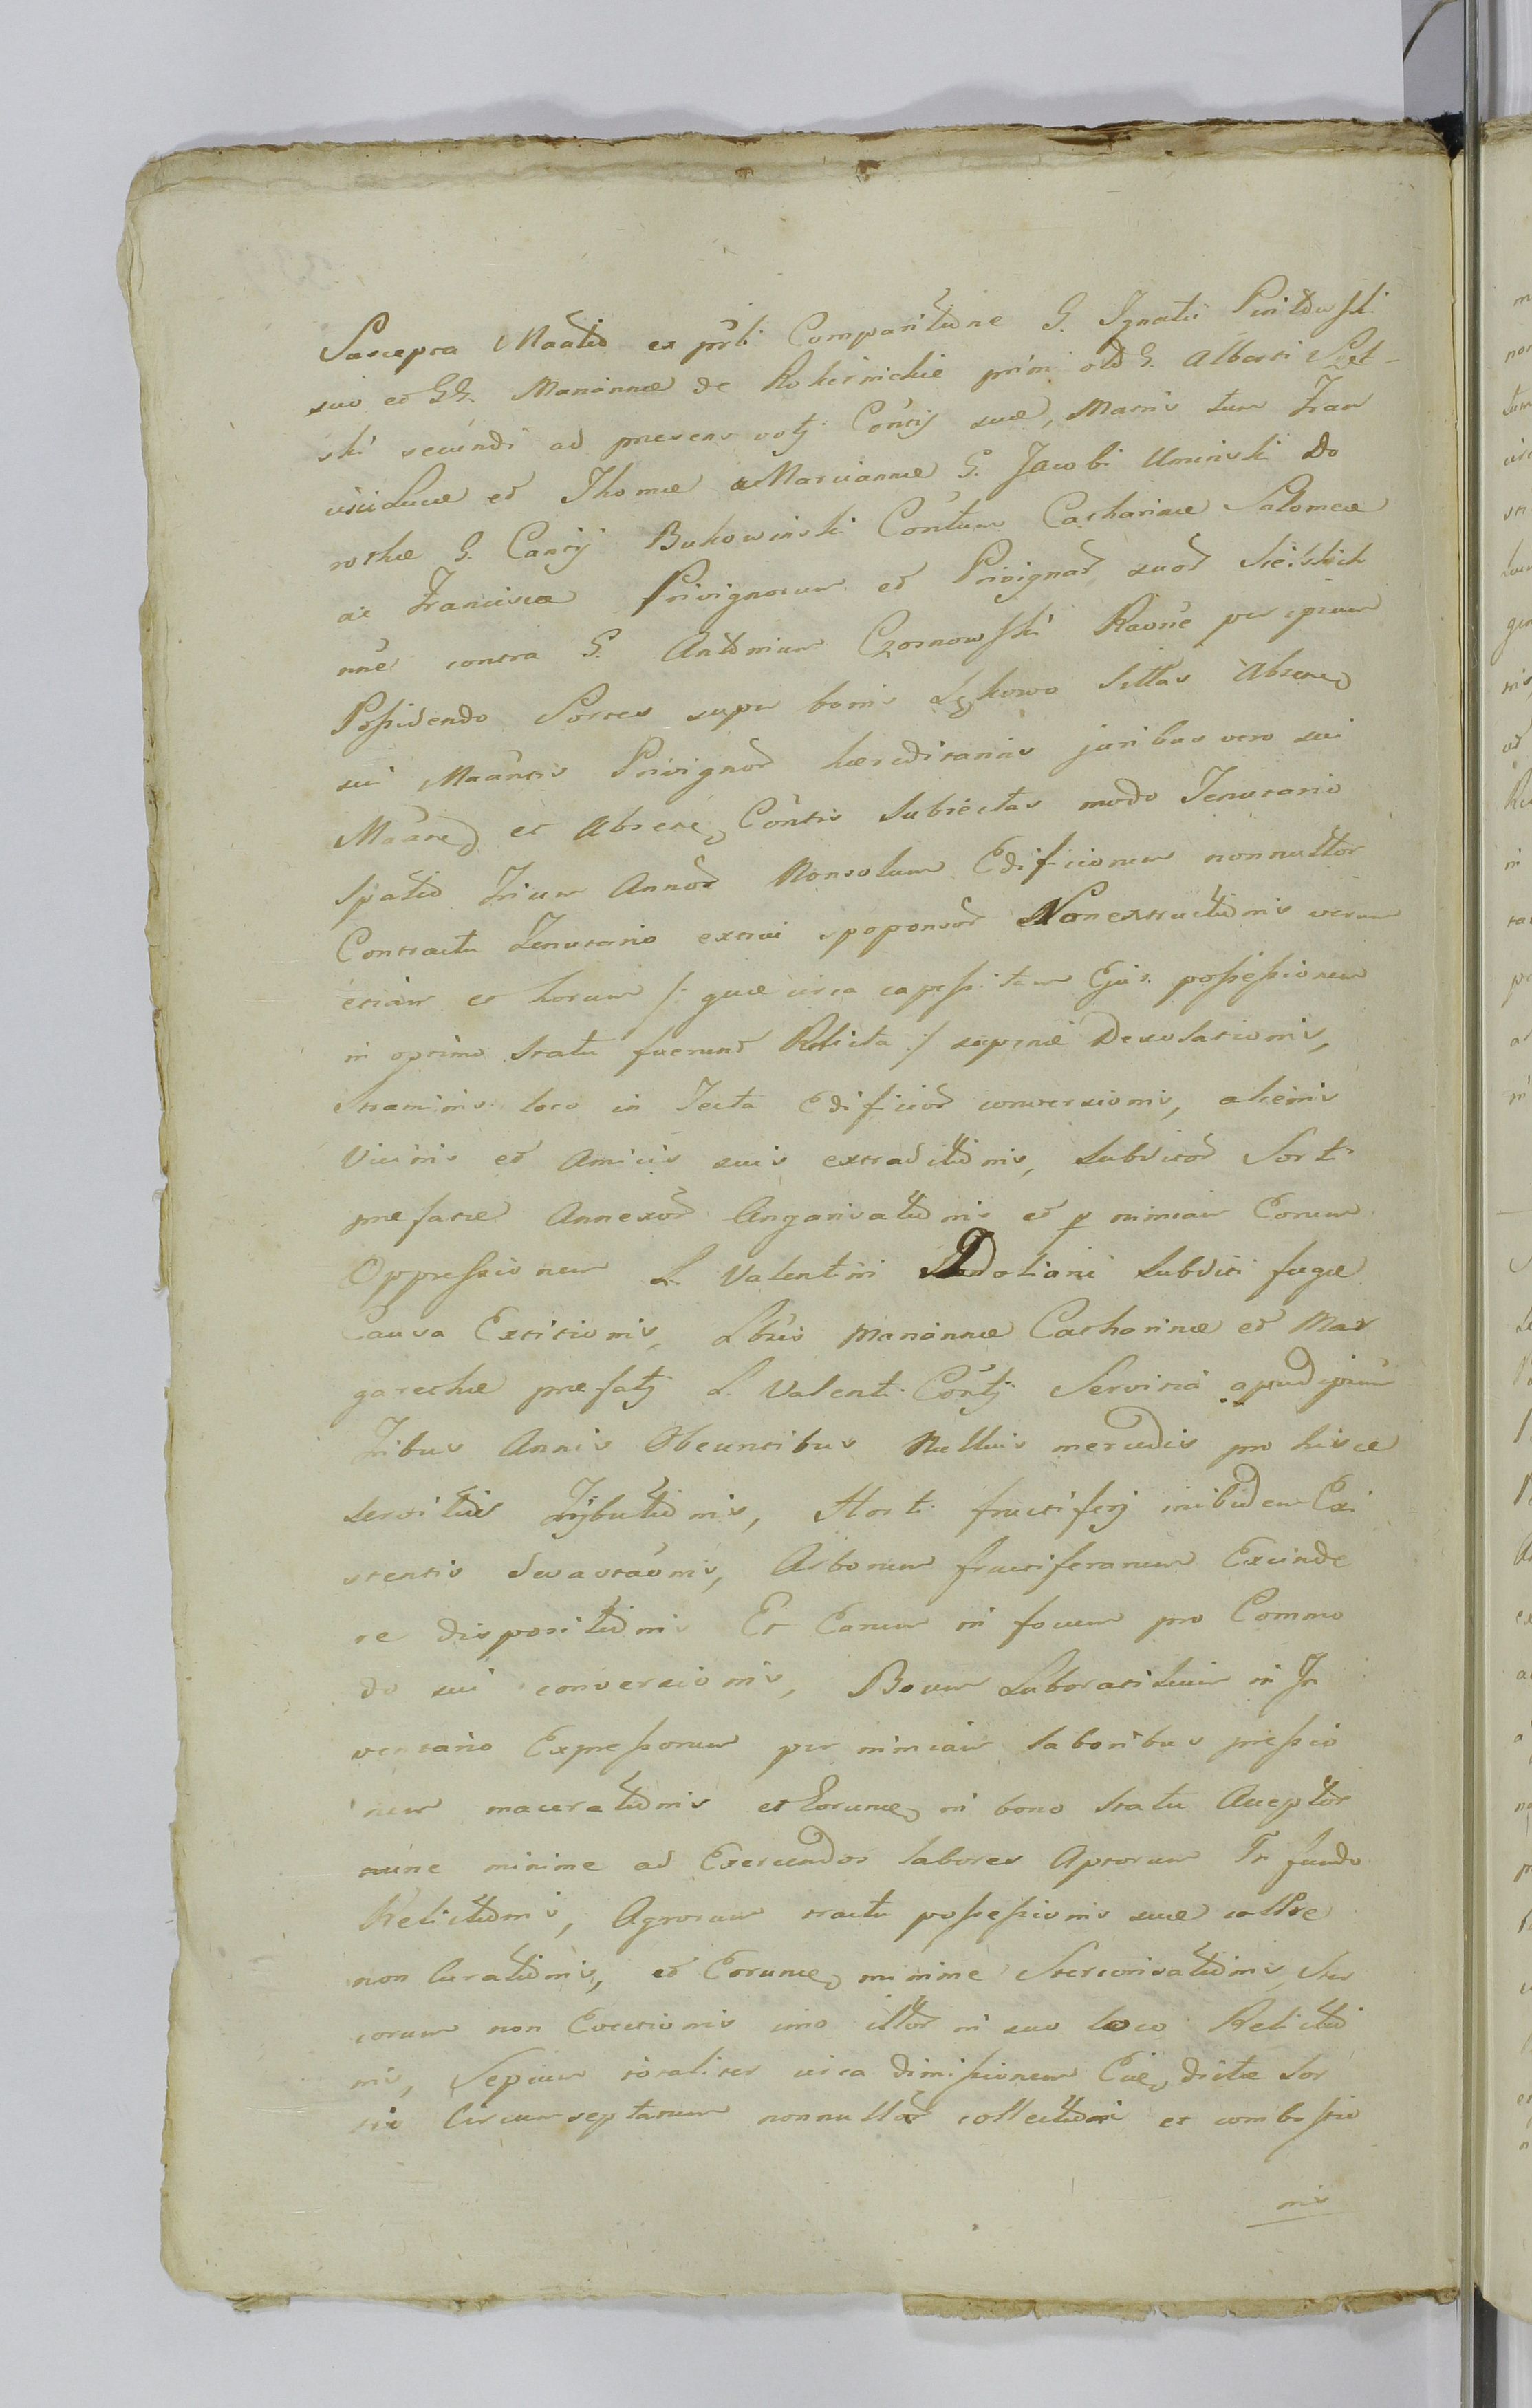 Suscepta Maãtio ex pñli Comparitione G. Ignatii
suo et GG. Mariannæ de Rokicnickie primi olim G. Alberti
ski secundi ad præsens votj Cońsij suæ, Matris tum Fran
cisci Lucæ et Thomæ Mariannæ G. Jacobi Uminski Do
rothæ G. Cantij Bukowinski Contum Catharinæ Salomeæ
ac Franciscæ Privignorum et Privignar suor
nne contra G. Antonium Czosnowski Raõne per ipsum
Possidendo Sortes super bonis Lękowo sittas Absene
sui Maãntis Privignor hæreditariis juribus vero sui
Maãne et Absene Cońtis Subiectas modo Tenutario
Spatio Trium Annor Nonsolum Edificiorum nonnullor
Contractu Tenutario extrui spoponsor Nonextructionis verum
etiam et horum /: quæ circa capessitam Ejus possessionem
in optimo statu fuerunt Relicta :/ supinæ Desolationis,
Straminis loco in Tecta Edificior conversionis, alienis
Vicinis et Amicis suis extraditionis, Subditor Sorti
præfatæ Annexor Angarisationis et p nimiam Eorum
Oppressionem L. Valentini Subditi fugæ
Causa Excitionis, Lbris Mariannæ Catharinæ et Mar
garethæ præfatj L. Valenti Contj Servitia apud ipsum
Tribus Annis Obeuntibus Nullius mercedis pro hisce
servitiis Trybutionis, Horti fructiferj inibidem Exi
stentis Devastaõnis, Arborum fructiferarum Excinde
re dispositionis Et Earum in focum pro Commo
do sui conversionis, Boum Laborasilium in In
ventario Expressorum per nimiam laboribus pressio
nem macerationis et Eorunue in bono statu Acceptor
nunc minime ad Exercendos labores Aptorum In fundo
Relictionis, Agrorum tractu possessionis suæ
non Curationis, et Eorunue minime Stercorisationis Ster
corum non Evectionis imo illor in suo loco Relictio
nis, Sepium totaliter circa dimissionem Cue dictæ Sor
tis Circumseptarum nonnullar collectioni et combustio
nis